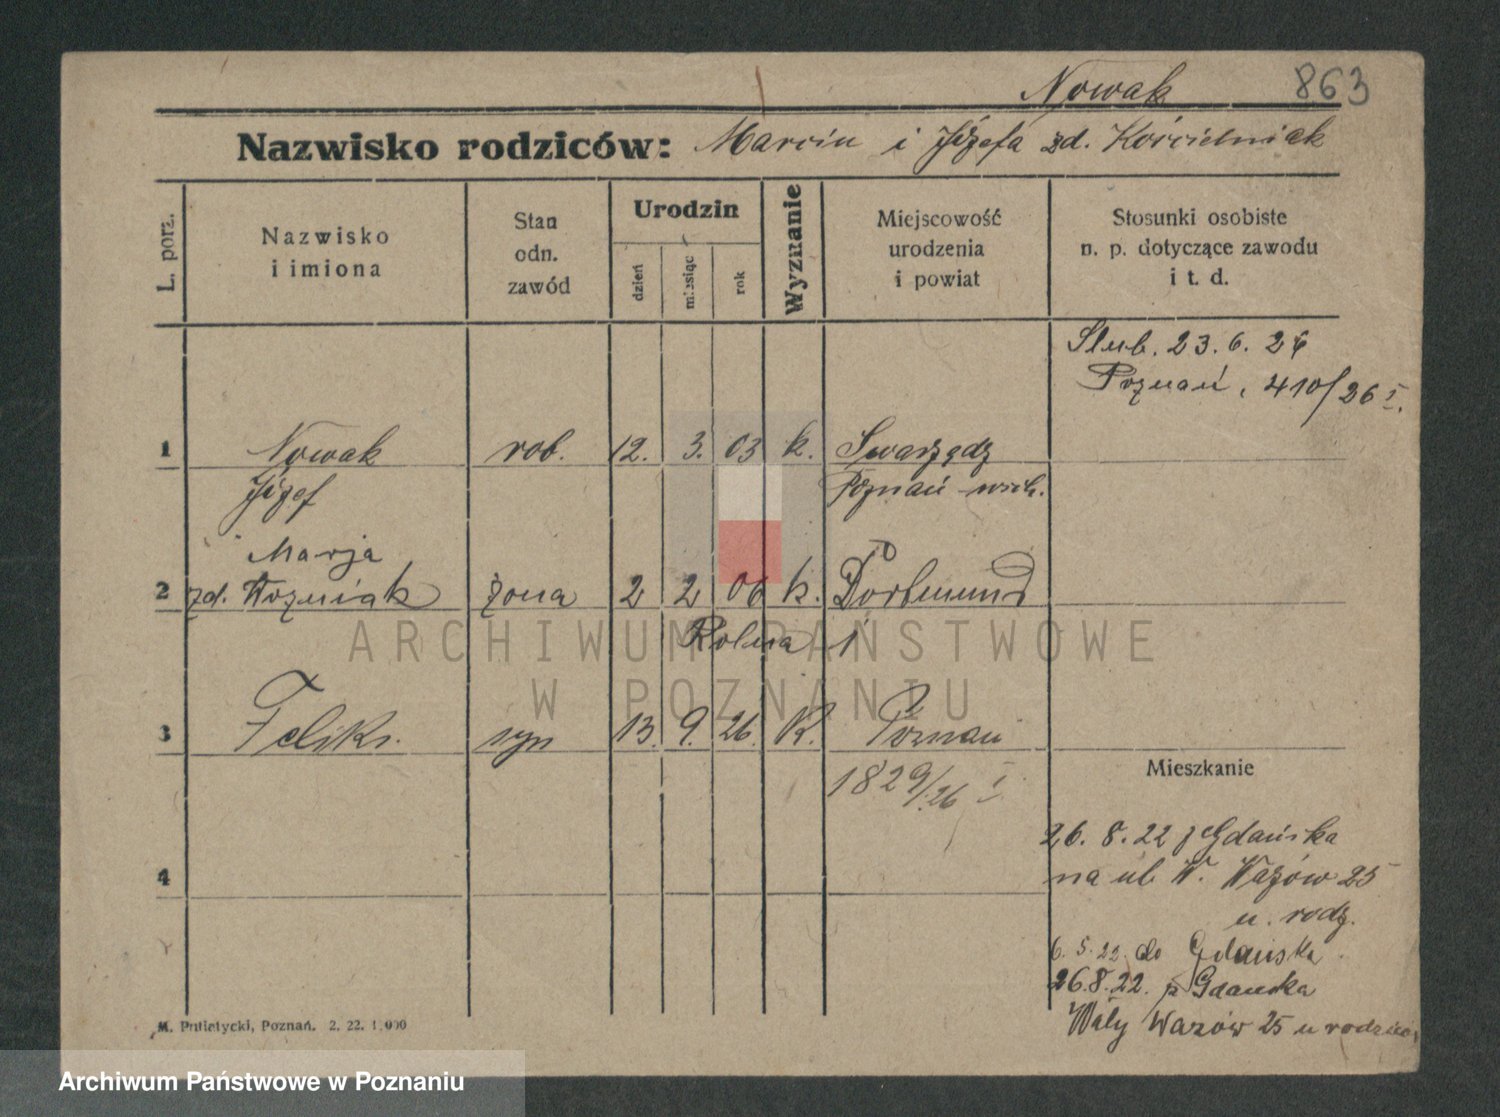 Nowak 863
Nazwisko rodziców: Marcin i Józefa zd. Kościelniak
L. porz.
Nazwisko
i imiona
Stan
odn.
zawód
Urodzin
dzień
miesiąc
rok
Wyznanie
Miejscowość
urodzenia
i powiat
Stosunki osobiste
n. p. dotyczące zawodu
i t. d.
Slub. 23. 6. 26
Poznań, 410/26 I.
1 Nowak rob. 12. 3. 03 k. Swarzędz
Józef Poznań wsch.
Marja
2 zd. Woźniak żona 2 2 06 k. Dortmund
Rolna 1
3 Feliks. syn 13. 9. 26. K. Poznań
1829/26 I
Mieszkanie
26. 8. 22 z Gdańska
4 na ul. W. Wazów 25
u. rodz.
6. 5. 22. do Gdańska.
26.8.22. z Gdańska
Wały Wazów 25 u rodziców
M. Putiatycki, Poznań. 2. 22. 1.000
ARCHIWUM PAŃSTWOWE
W POZNANIU
Archiwum Państwowe w Poznaniu